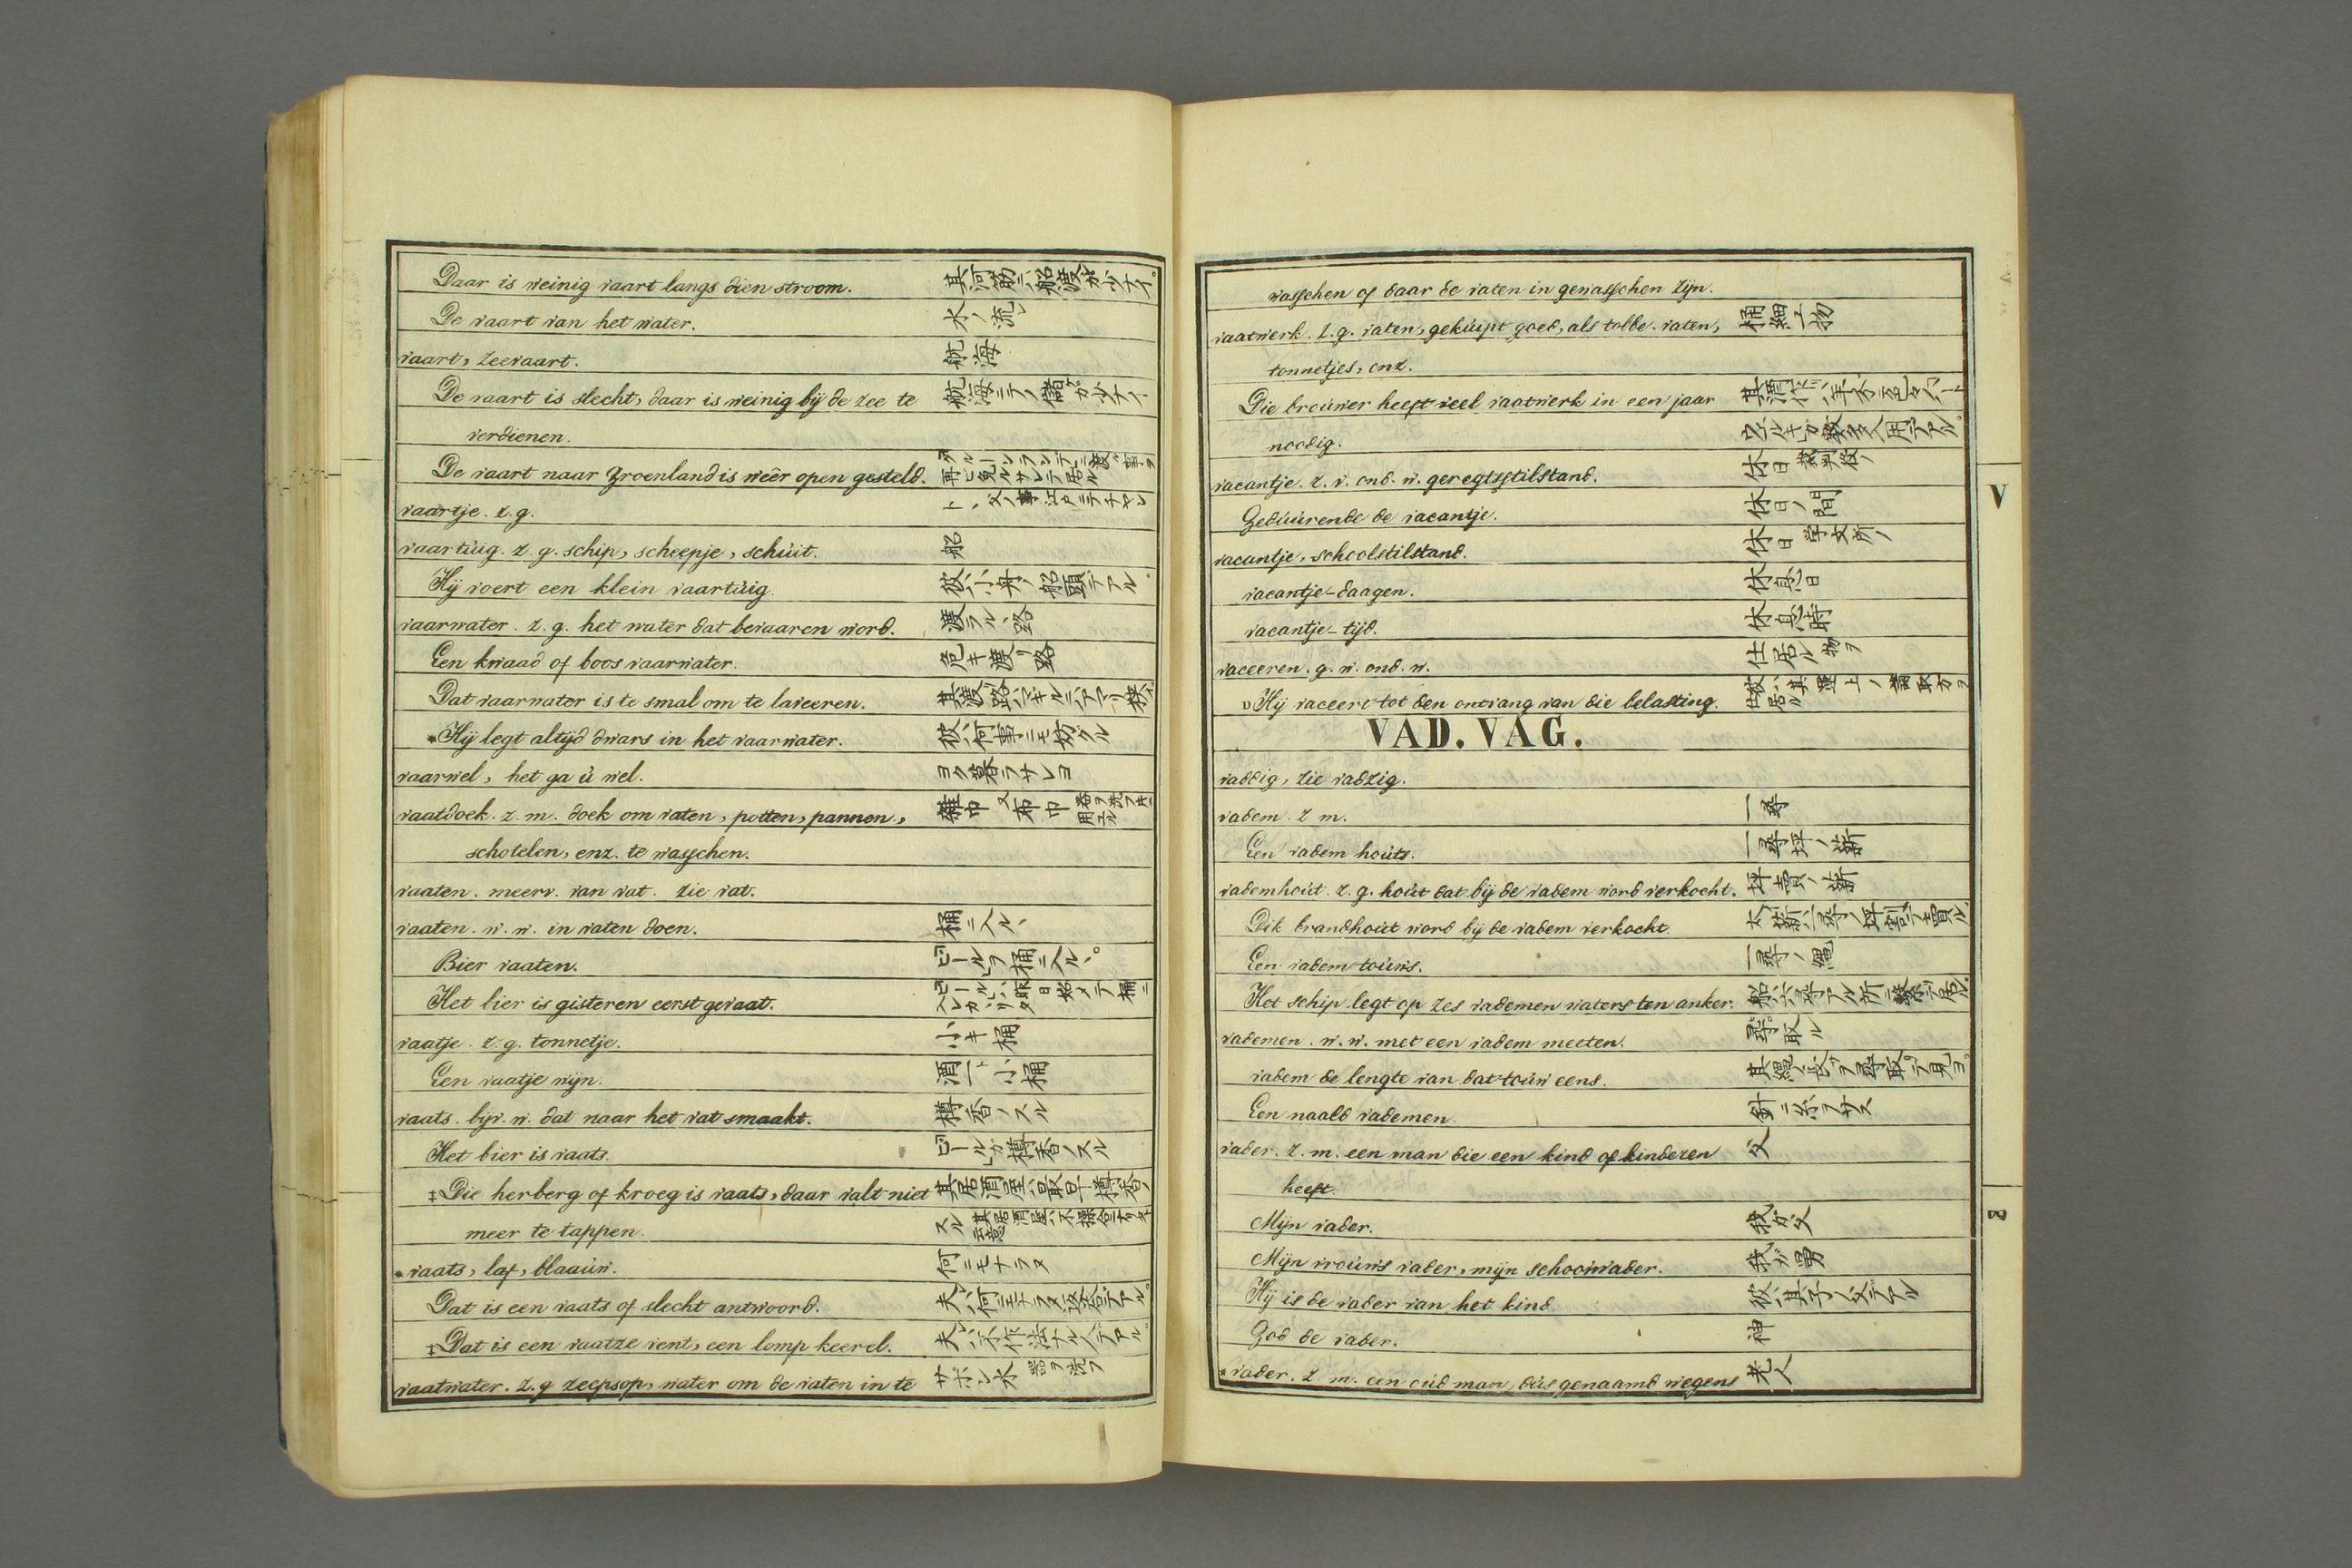 Daar is weinig vaart langs dien stroom. 其河筋ニハ船渡ガ少ナイ。
De vaart van het water. 水ノ流レ
vaart, zeevaart. 航海
De vaart is slecht, daar is weinig bij de zee te 航海ニテノ儲ケガ少ナイ
verdienen.
De vaart naar Groenland is weêr open gesteld. 再ビ免ルサレテ居ル
vaartje. z.g.
vaartúig. z. g. schip, scheepje, schúit. 船
Hij voert een klein vaartúig. 彼ハ小舟ノ船頭デアル。
vaarwater. z. g. het water dat bevaaren word. 渡ラルヽ路
Een kwaad of boos vaarwater. 危キ渡リ路
Dat vaarwater is te smal om te laveeren.
*Hij legt altijd dwars in het vaarwater. 彼ハ何事ニモ妨グル
vaarwel, het ga ú wel. ヨク暮ラサレヨ
vaatdoek. z. m. doek om vaten, potten, pannen, 雑巾 又 布巾
schotelen, enz. te wasschen.
vaaten. meerv. van vat. zie vat.
vaaten. w. w. in vaten doen. 桶ニ入ルヽ
Bier vaaten. ビールヲ桶ニ入ルヽ。
Het bier is gisteren eerst gevaat.
vaatje. z. g. tonnetje. 小キ桶
Een vaatje wijn. 酒一ト小桶
vaats. bijv. w. dat naar het vat smaakt. 樽香ノスル
Het bier is vaats. ビールガ樽香ノスル
‡Die herberg of kroeg is vaats, daar valt niet 其居酒屋ハ最早樽香ノ
meer te tappen. スル
*vaats, laf, blaaúw. 何ニモナラヌ
Dat is een vaats of slecht antwoord. 夫レハ何ニモナラヌ返答デアル。
‡Dat is een vaatze vent, een lomp keerel. 夫レハ不作法ナル人デアル。
vaatwater. z. g. zeepsop, water om de vaten in te サボン水 器ヲ洗フ
wasschen of daar de vaten in gewasschen zijn.
vaatwerk. z. g. vaten, gekúipt goed, als tobbe. vaten, 桶細工物
tonnetjes, enz.
Die broúwer heeft veel vaatwerk in een jaar
noodig.
vacantje. z. v. ond. w. geregtsstilstand. 休日 裁判役ノ
Gedúúrende de vacantje. 休日ノ間
vacantje, schoolstilstand. 休日 学文所ノ
vacantje-daagen. 休息日
vacantje-tijd. 休息時
vaceeren. g. w. ond. w. 仕居ル 物ヲ
Hij vaceert tot den ontvang van die belasting.
VAD. VAG.
vaddig, zie vadzig.
vadem. z m. 一尋
Een vadem hoúts. 一尋坪ノ薪
vademhoút. z. g. hoút dat bij de vadem word verkocht. 坪賣ノ薪
Dik brandhoút word bij de vadem verkocht.
Een vadem toúws. 一尋ノ縄
Het schip legt op zes vademen waters ten anker. 船ハ六尋アル所ニ繋ガ居ル。
vademen. w. w. met een vadem meeten. 尋取ル
vadem de lengte van dat toúw eens. 其縄ノ長サヲ尋取テ見ヨ。
Een naald vademen. 針ニ糸ヲサス
vader. z. m. een man die een kind of kinderen 父
heeft.
Mijn vader. 我ガ父
Mijn vroúws vader, mijn schoonvader. 我ガ舅
Hij is de vader van het kind. 彼ハ其子ノ父デアル
God de vader. 神
*vader. z. m. een oúd man, dús genaamd wegens 老人
V
2